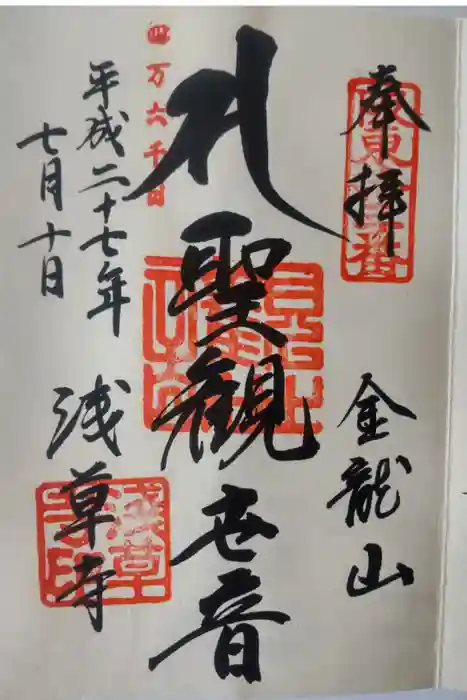 奉拝
坂東十三番
金龍山
聖観世音
四万六千日
平成二十七年
七月十日
浅草寺
浅草寺印